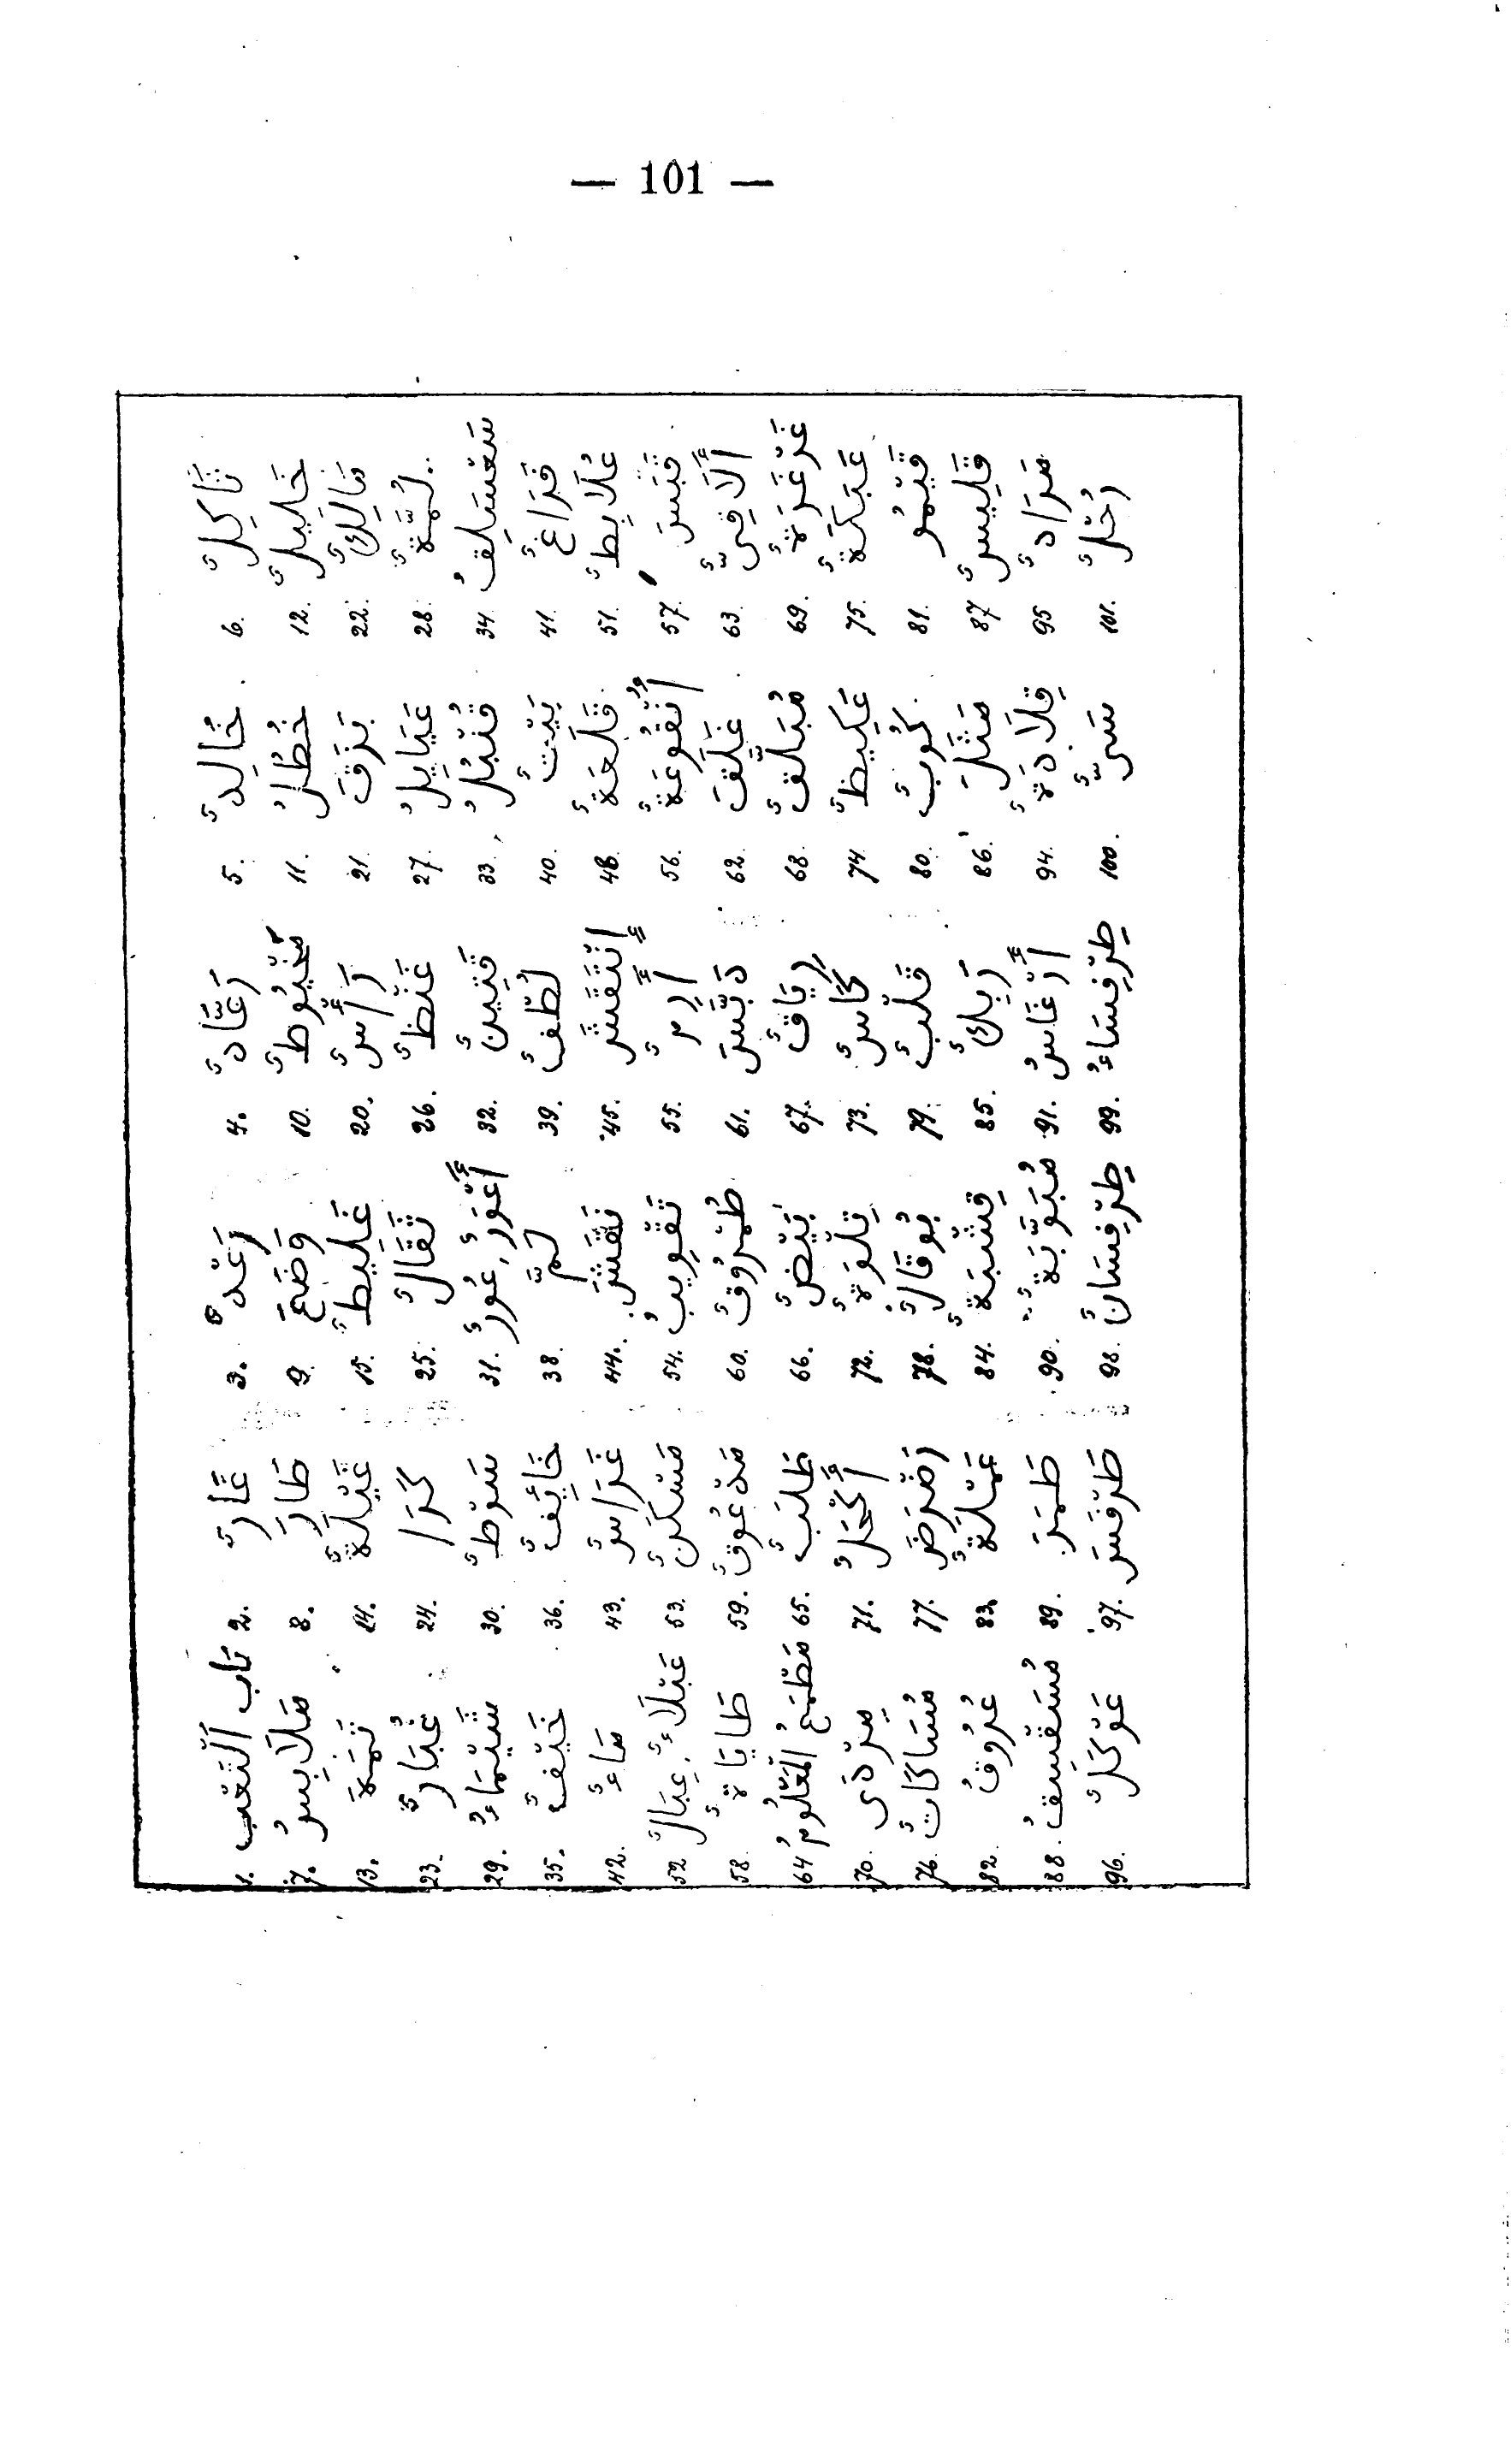 — 101 —
1. تاب التعب 2. عَارٌ 3. رَعْدٌ 4. رَعَّادٌ 5. خَالِدٌ 6. ثَاكِلٌ
7. مَلَابِسُ 8. طَارَ 9. وَضَعَ 10. مَخْبُوطٌ 11. خُطُلٌ 12. خَلِيلٌ
13. 14. عَيْلَةٌ 15. غَلِيظٌ 20. رَأْسٌ 21. بَرَقَ 22. مَالِكٌ
23. غُبَارٌ 24. كَرَا 25. ثَقَالٌ 26. 27. عَيَايِلُ 28.
29. شَيْمَاءُ 30. سَوْطٌ 31. أَعْوَرُ، عُورٌ 32. 33. قُنْبُلٌ 34.
35. خَيْفٌ 36. خَايِفٌ 38. لَمَّ 39. لُطْفٌ 40. بَيْتٌ 41. فَرَاغٌ
42. مَاءٌ 43. غَرَاسٌ 44. نَقَشَ 45. إِنْتَقَشَ 48. قَلَعَةٌ 51. عُلَابِطٌ
52. عَبْلَاءُ، عِبَالٌ 53. مَسْكَنٌ 54. تَقْوِيبٌ 55. 56. أُنْقُوعَةٌ 57. قَبَسَ
58. طَايَاةٌ 59. مَدْعُوقٌ 60. طُمْرُوقٌ 61. دَبَّسَ 62. غَلَقَ 63.
64. مَطْمَعُ الْمَعْلُومِ 65. طَلَبٌ 66. بَيْضٌ 67. رِيَاقٌ 68. مُبَلَّقٌ 69. غَرْغَرَةٌ
70. مِرْدَى 71. أَكْحَلُ 72. تِلْوَةٌ 73. 74. عَكِيظٌ 75. عَبَكَةٌ
76. مُسَاكَاتٌ 77. رَضْرَضَ 78. بُوقَالٌ 79. قَلْبٌ 80. كُوبٌ 81.
82. عُرُوقُ 83. عَمْلَةٌ 84. قِشْبَةٌ 85. رَبِكٌ 86. مَثَلَ 87. قَلِيسٌ
88. مُسَقْسِقٌ 89. طَمَرَ 90. مُبَوَّبَةٌ 91. أَرْغَاسُ 94. قِلَادَةٌ 95. مَرَادٌ
96. عَوْكَلٌ 97. طَرْفَسَ 98. طِرْفِسَانٌ 99. طِرْفِسَاءُ 100. سَيٌّ 101. رُحْلٌ